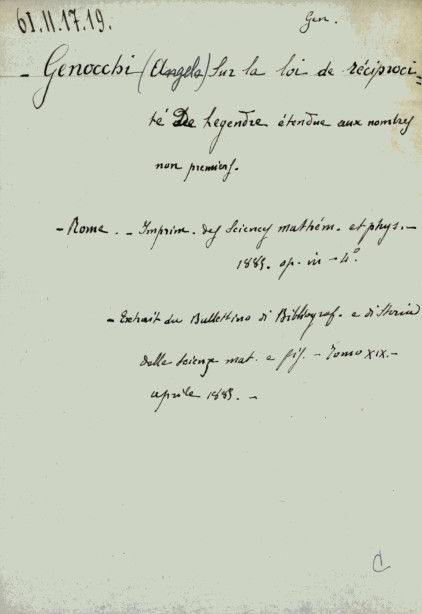 61.II.17.19.
Gen.
- Genocchi (Angelo) Sur la loi de réciproci-
té De Legendre étendue aux nombres
non premiers.
- Rome. - Imprim. des Sciences mathém. et phys. -
1885. op. in - 4°.
- Extrait du Bullettino di Bibliograf. e di Storia
delle scienze mat. e fis. - Tomo XIX. -
aprile 1885. -
C